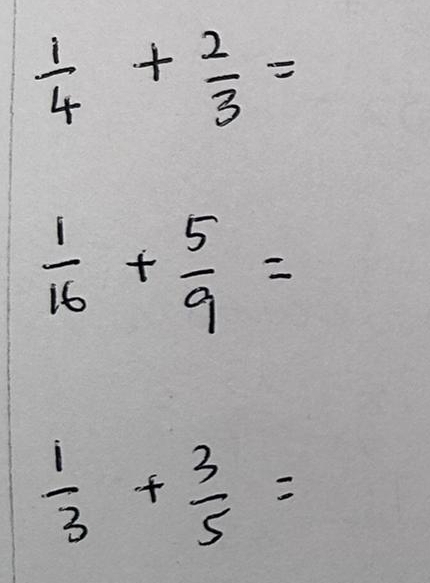 1/4 + 2/3 =
1/16 + 5/9 =
1/3 + 3/5 =